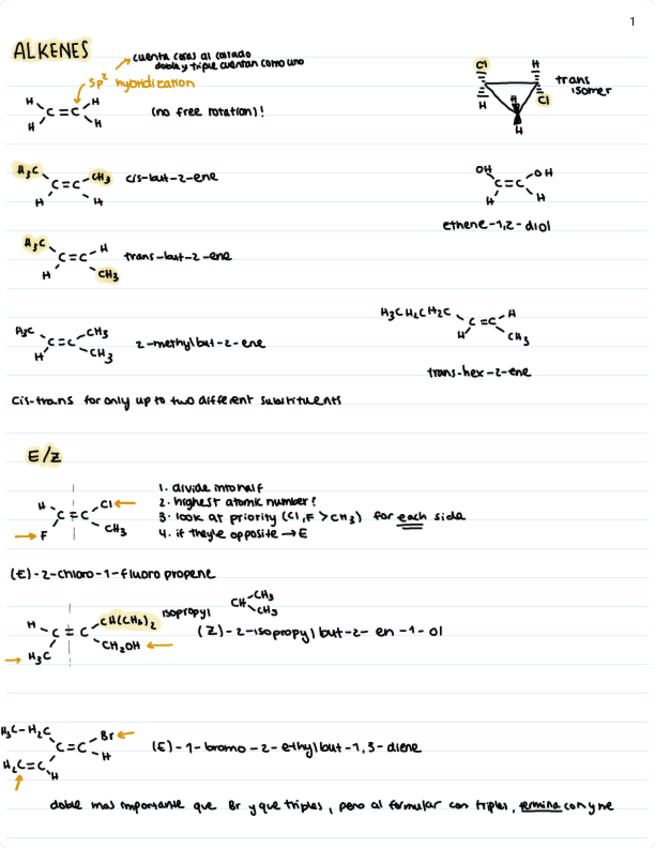 1
ALKENES
cuenta cosas al costado
doble y triple cuentan como uno
sp² hybridization
H H
C=C
H H
(no free rotation)!
Cl H
H Cl
H
H
trans
isomer
H₃C CH₃
C=C
H H
cis-but-2-ene
OH OH
C=C
H H
ethene-1,2-diol
H₃C H
C=C
H CH₃
trans-but-2-ene
H₃C CH₃
C=C
H CH₃
2-methylbut-2-ene
H₃CH₂CH₂C H
C=C
H CH₃
trans-hex-2-ene
cis-trans for only up to two different substituents
E/Z
H Cl
C=C
F CH₃
1. divide into half
2. highest atomic number?
3. look at priority (Cl, F > CH₃) for each side
4. if they're opposite → E
(E)-2-chloro-1-fluoro propene
H CH(CH₃)₂
C=C
H₃C CH₂OH
isopropyl
CH CH₃
CH₃
(Z)-2-isopropylbut-2-en-1-ol
H₃C-H₂C Br
C=C
H₂C=C H
H
(E)-1-bromo-2-ethylbut-1,3-diene
doble mas importante que Br y que triples, pero al formular con triples, termina con yne